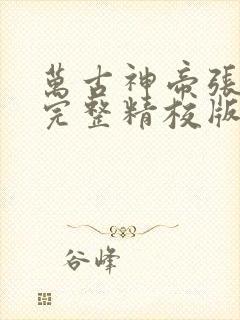 萬古神帝張
完整精校版
谷峰